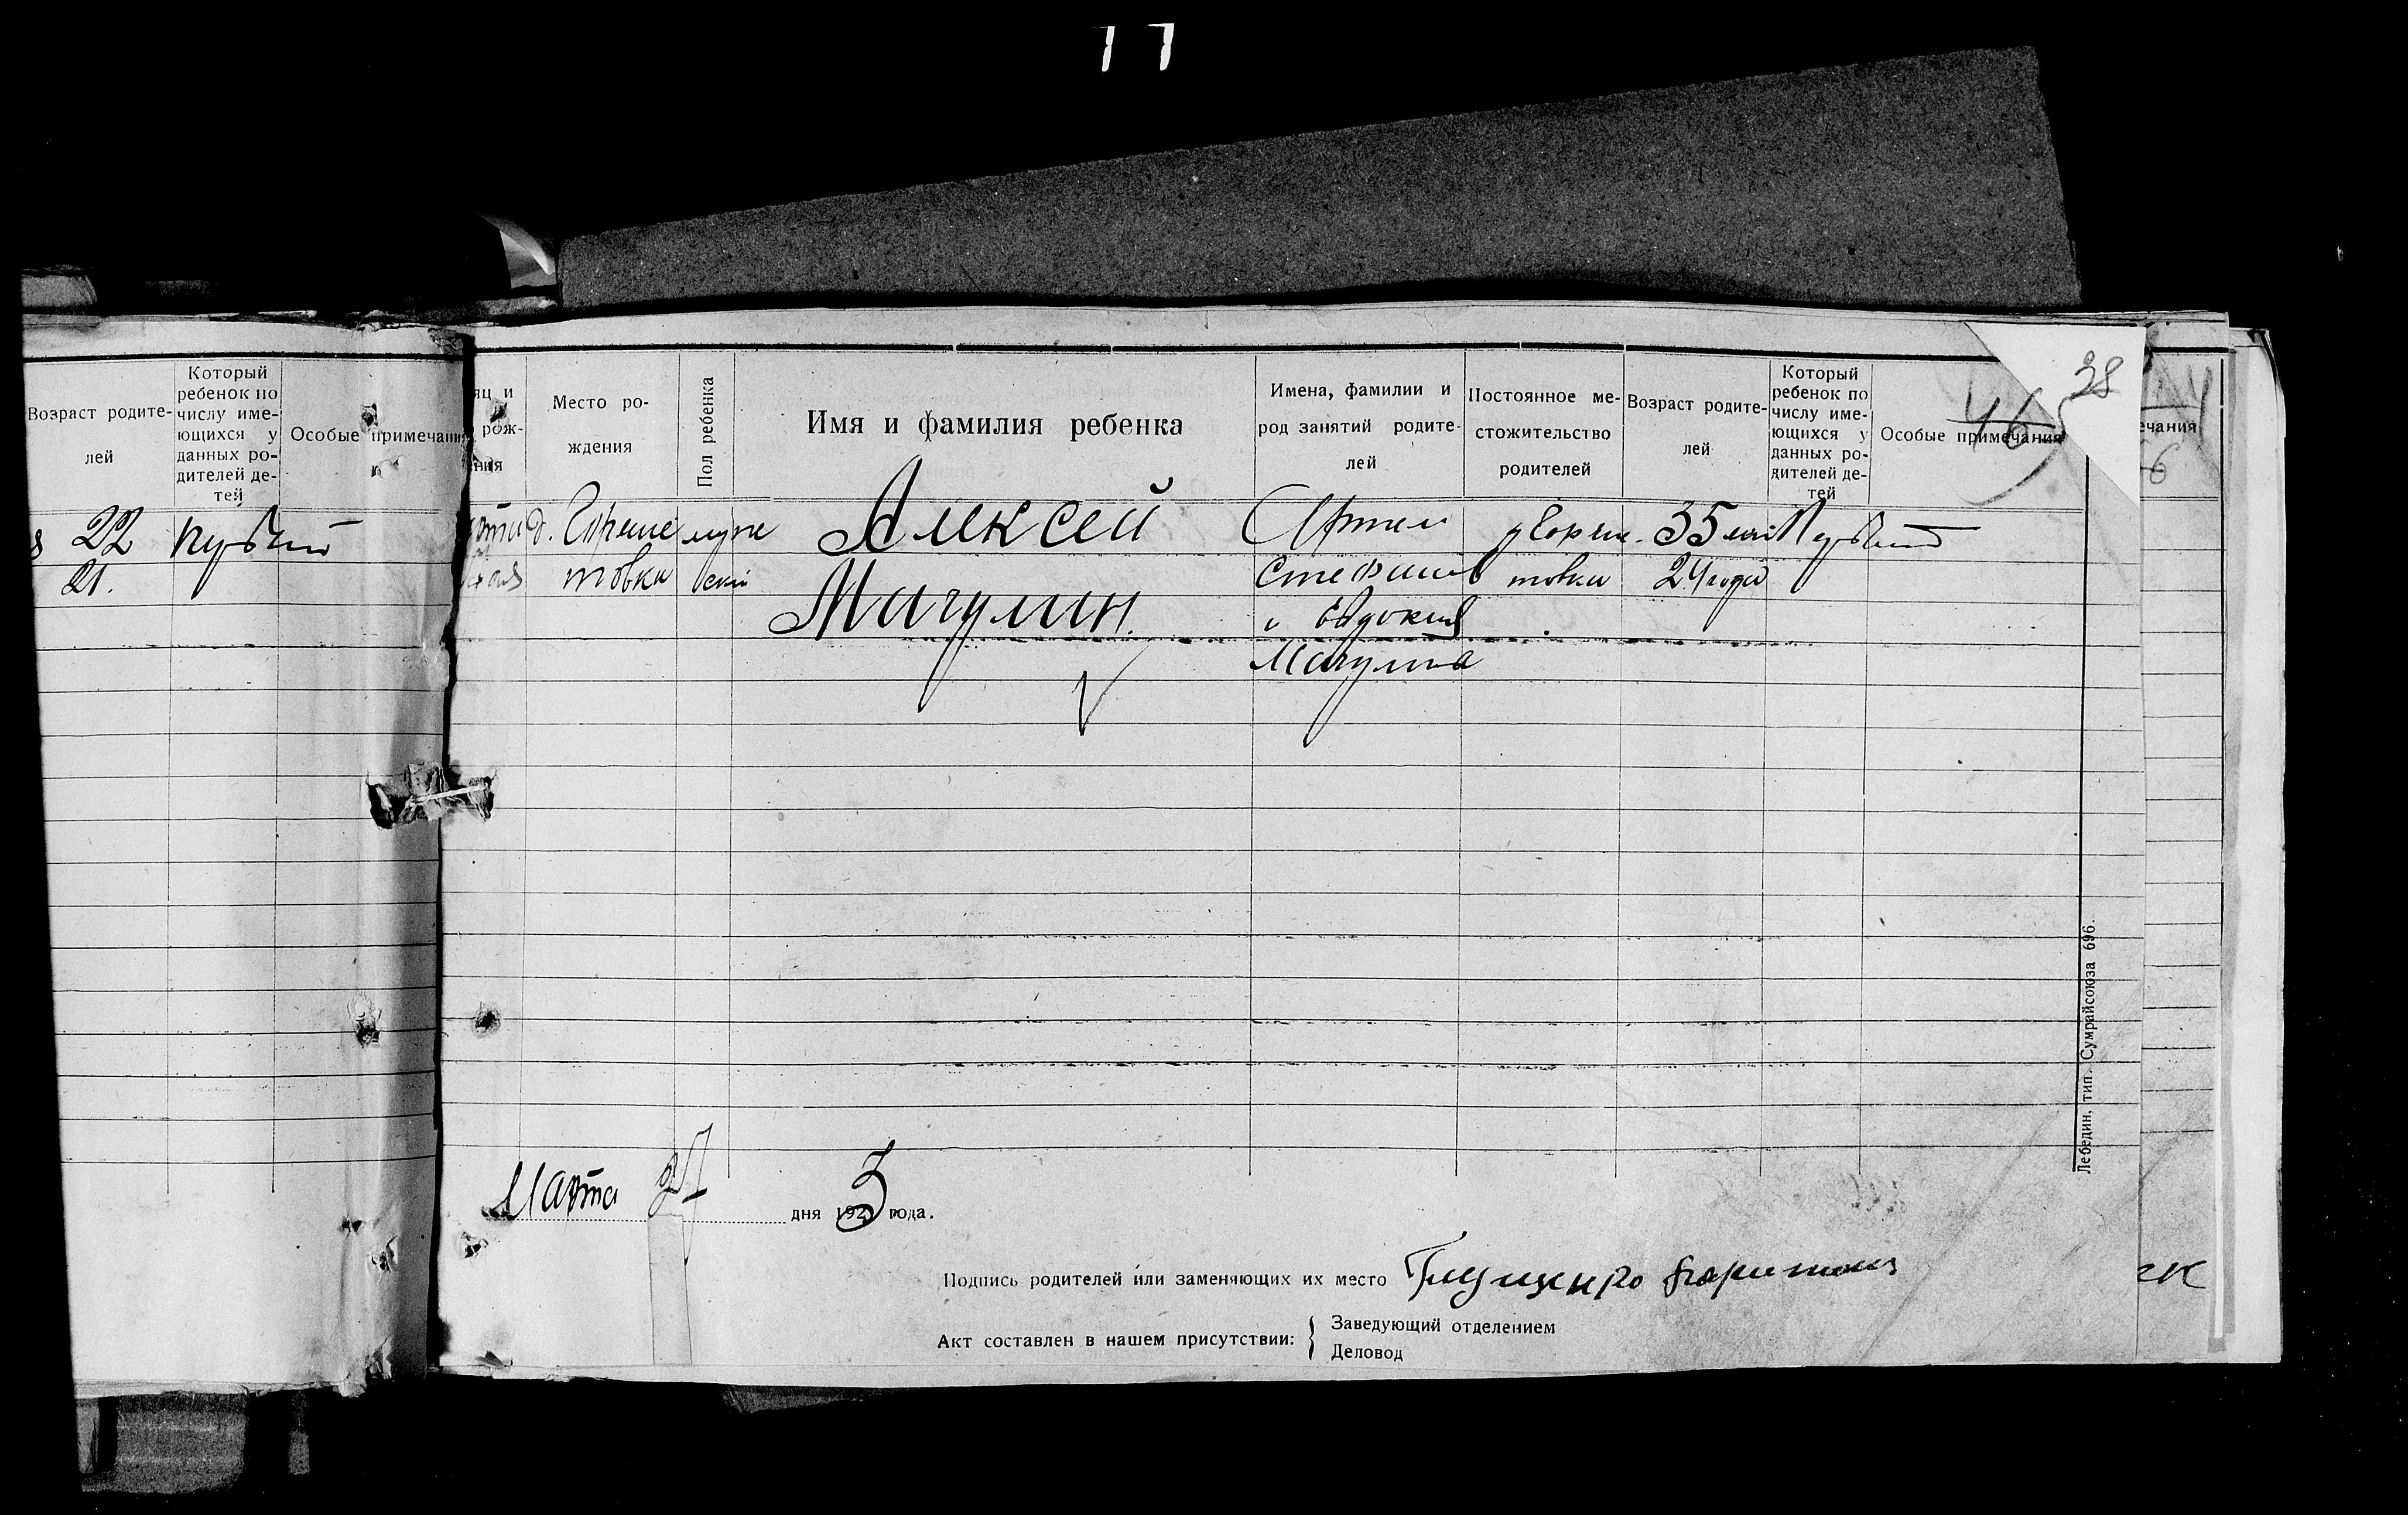 Возраст родите-
лей
Который
ребенок по
числу име-
ющихся у
данных ро-
дителей де-
тей
Особые примечания
22
первый
21.
яц и
рож-
ния
Место ро-
ждения
Пол ребенка
Имя и фамилия ребенка
Имена, фамилии и
род занятий родите-
лей
Постоянное ме-
стожительство
родителей
Возраст родите-
лей
Который
ребенок по
числу име-
ющихся у
данных ро-
дителей де-
тей
Особые примечания
46
38
ечания
6
д.
муже
Алексей
Артем
35
Первый
товка
ский
Мачулин.
товка
24 года
и Евдокия
Мачулина
Марта
дня 1923 года.
Подпись родителей или заменяющих их место
Акт составлен в нашем присутствии:
Заведующий отделением
Деловод
Лебедин, тип. Сумрайсоюза 696.